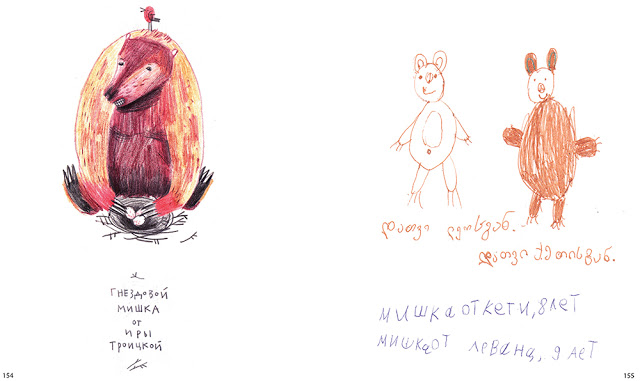 ГНЕЗДОВОЙ
МИШКА
ОТ
ИРЫ
ТРОИЦКОЙ
154
დათვი ლეოსგან.
დათვი ქეთისგან.
МИШКА ОТ КЕТИ, 8 ЛЕТ
МИШКА ОТ ЛЕВАНА, 9 ЛЕТ
155